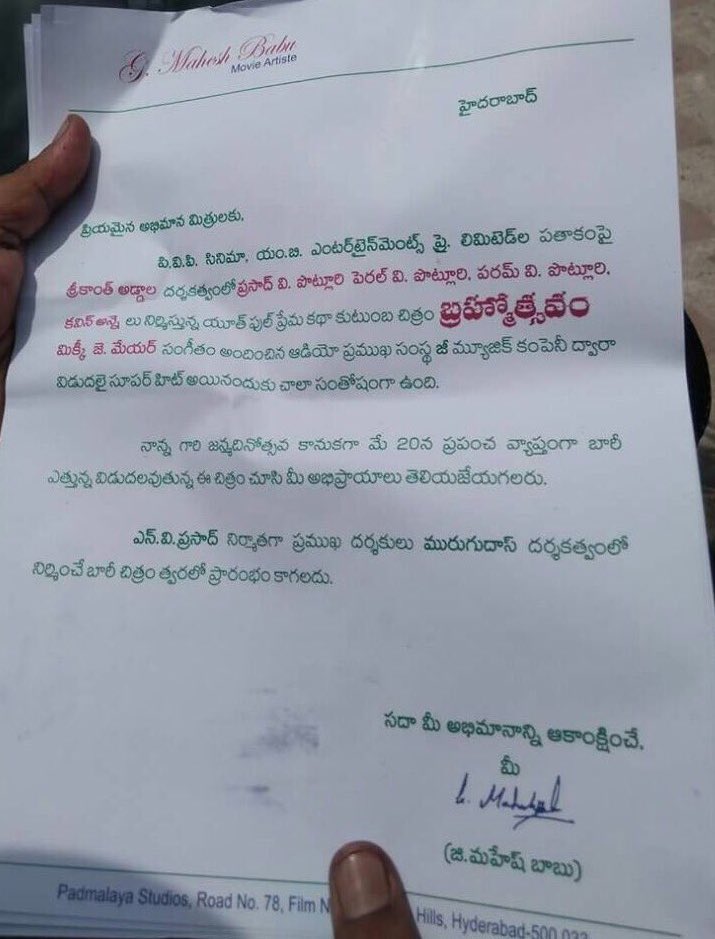 G. Mahesh Babu
Movie Artiste
హైదరాబాద్
ప్రియమైన అభిమాన మిత్రులకు,
పి.వి.పి. సినిమా, యం.బి. ఎంటర్‌టైన్‌మెంట్స్ ప్రై. లిమిటెడ్‌ల పతాకంపై
శ్రీకాంత్ అడ్డాల దర్శకత్వంలో ప్రసాద్ వి. పొట్లూరి పెరల్ వి. పొట్లూరి, పరమ్ వి. పొట్లూరి,
కవిన్ అన్నె లు నిర్మిస్తున్న యూత్ ఫుల్ ప్రేమ కథా కుటుంబ చిత్రం బ్రహ్మోత్సవం
మిక్కీ జె. మేయర్ సంగీతం అందించిన ఆడియో ప్రముఖ సంస్థ జీ మ్యూజిక్ కంపెనీ ద్వారా
విడుదలై సూపర్ హిట్ అయినందుకు చాలా సంతోషంగా ఉంది.
నాన్న గారి జన్మదినోత్సవ కానుకగా మే 20న ప్రపంచ వ్యాప్తంగా బారీ
ఎత్తున్న విడుదలవుతున్న ఈ చిత్రం చూసి మీ అభిప్రాయాలు తెలియజేయగలరు.
ఎన్.వి.ప్రసాద్ నిర్మాతగా ప్రముఖ దర్శకులు మురుగుదాస్ దర్శకత్వంలో
నిర్మించే బారీ చిత్రం త్వరలో ప్రారంభం కాగలదు.
సదా మీ అభిమానాన్ని ఆకాంక్షించే.
మీ
(జి.మహేష్ బాబు)
Padmalaya Studios, Road No. 78, Film Hills, Hyderabad-500 033